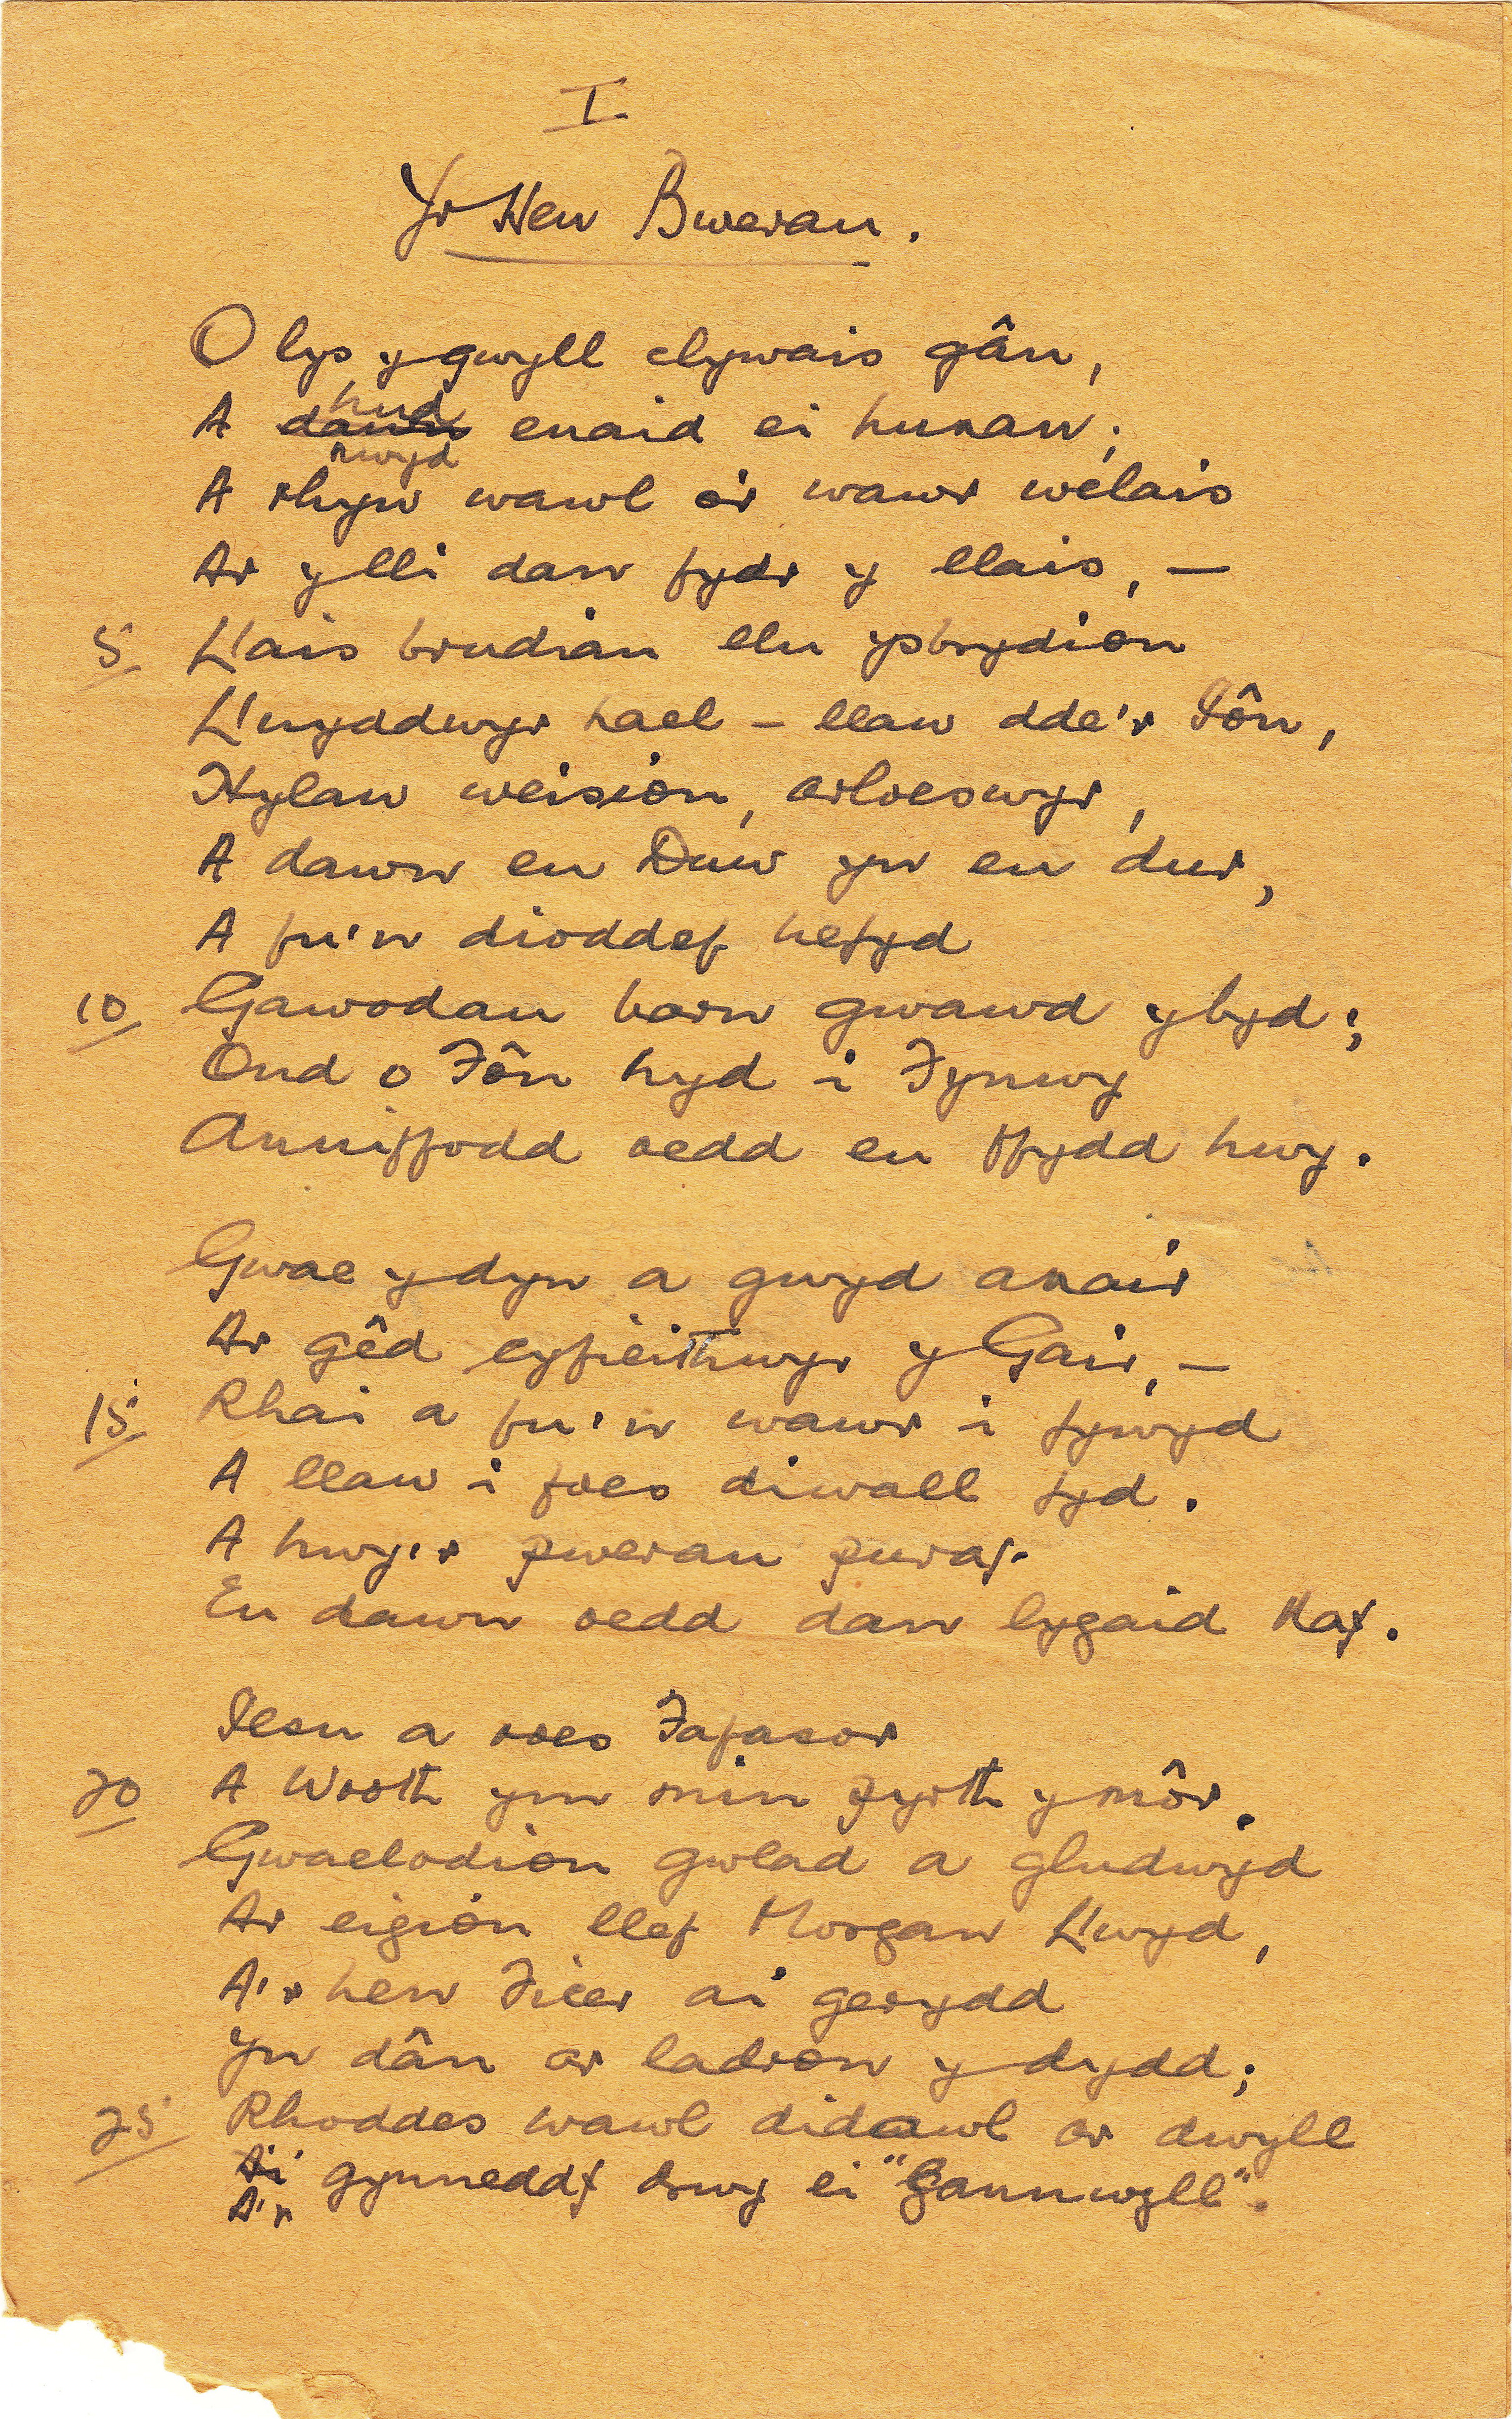 I
Yr Hen Bwerau.
O lys y gwyll clywais gân,
hud
A dawn enaid ei hunan;
nwyd
A rhyw wawl o'i wawr welais
Ar y lli dan fydr y llais, —
5 Llais brudiau llu ysbrydion
Llnyddwyr hael – llaw dde'r Iôn,
Hylaw weision, arloeswyr,
A dawn eu Duw yn eu dur,
A fu'n dioddef hefyd
10 Gawodau barn gwawd y byd;
Ond o Fôn hyd i Fynwy
Anniffodd oedd eu ffydd hwy.
Gwae y dyn a gwyd anair
Ar gêd cyfieithwyr y Gair, —
15 Rhai a fu'n wawr i fywyd
A llaw i foes diwall fyd.
A hwy'r pwerau puraf.
Eu dawn oedd dan lygaid Naf.
Iesu a roes Fafasor
20 A Wroth ym min pyrth y môr.
Gwaelodion gwlad a gludwyd
Ar eigion llef Morgan Llwyd,
A'r hen Ficer a'i gerydd
Yn dân ar ladron y dydd;
25 Rhoddes wawl didawl ar dwyll
A'i gynneddf drwy ei "Gannwyll".
A'r